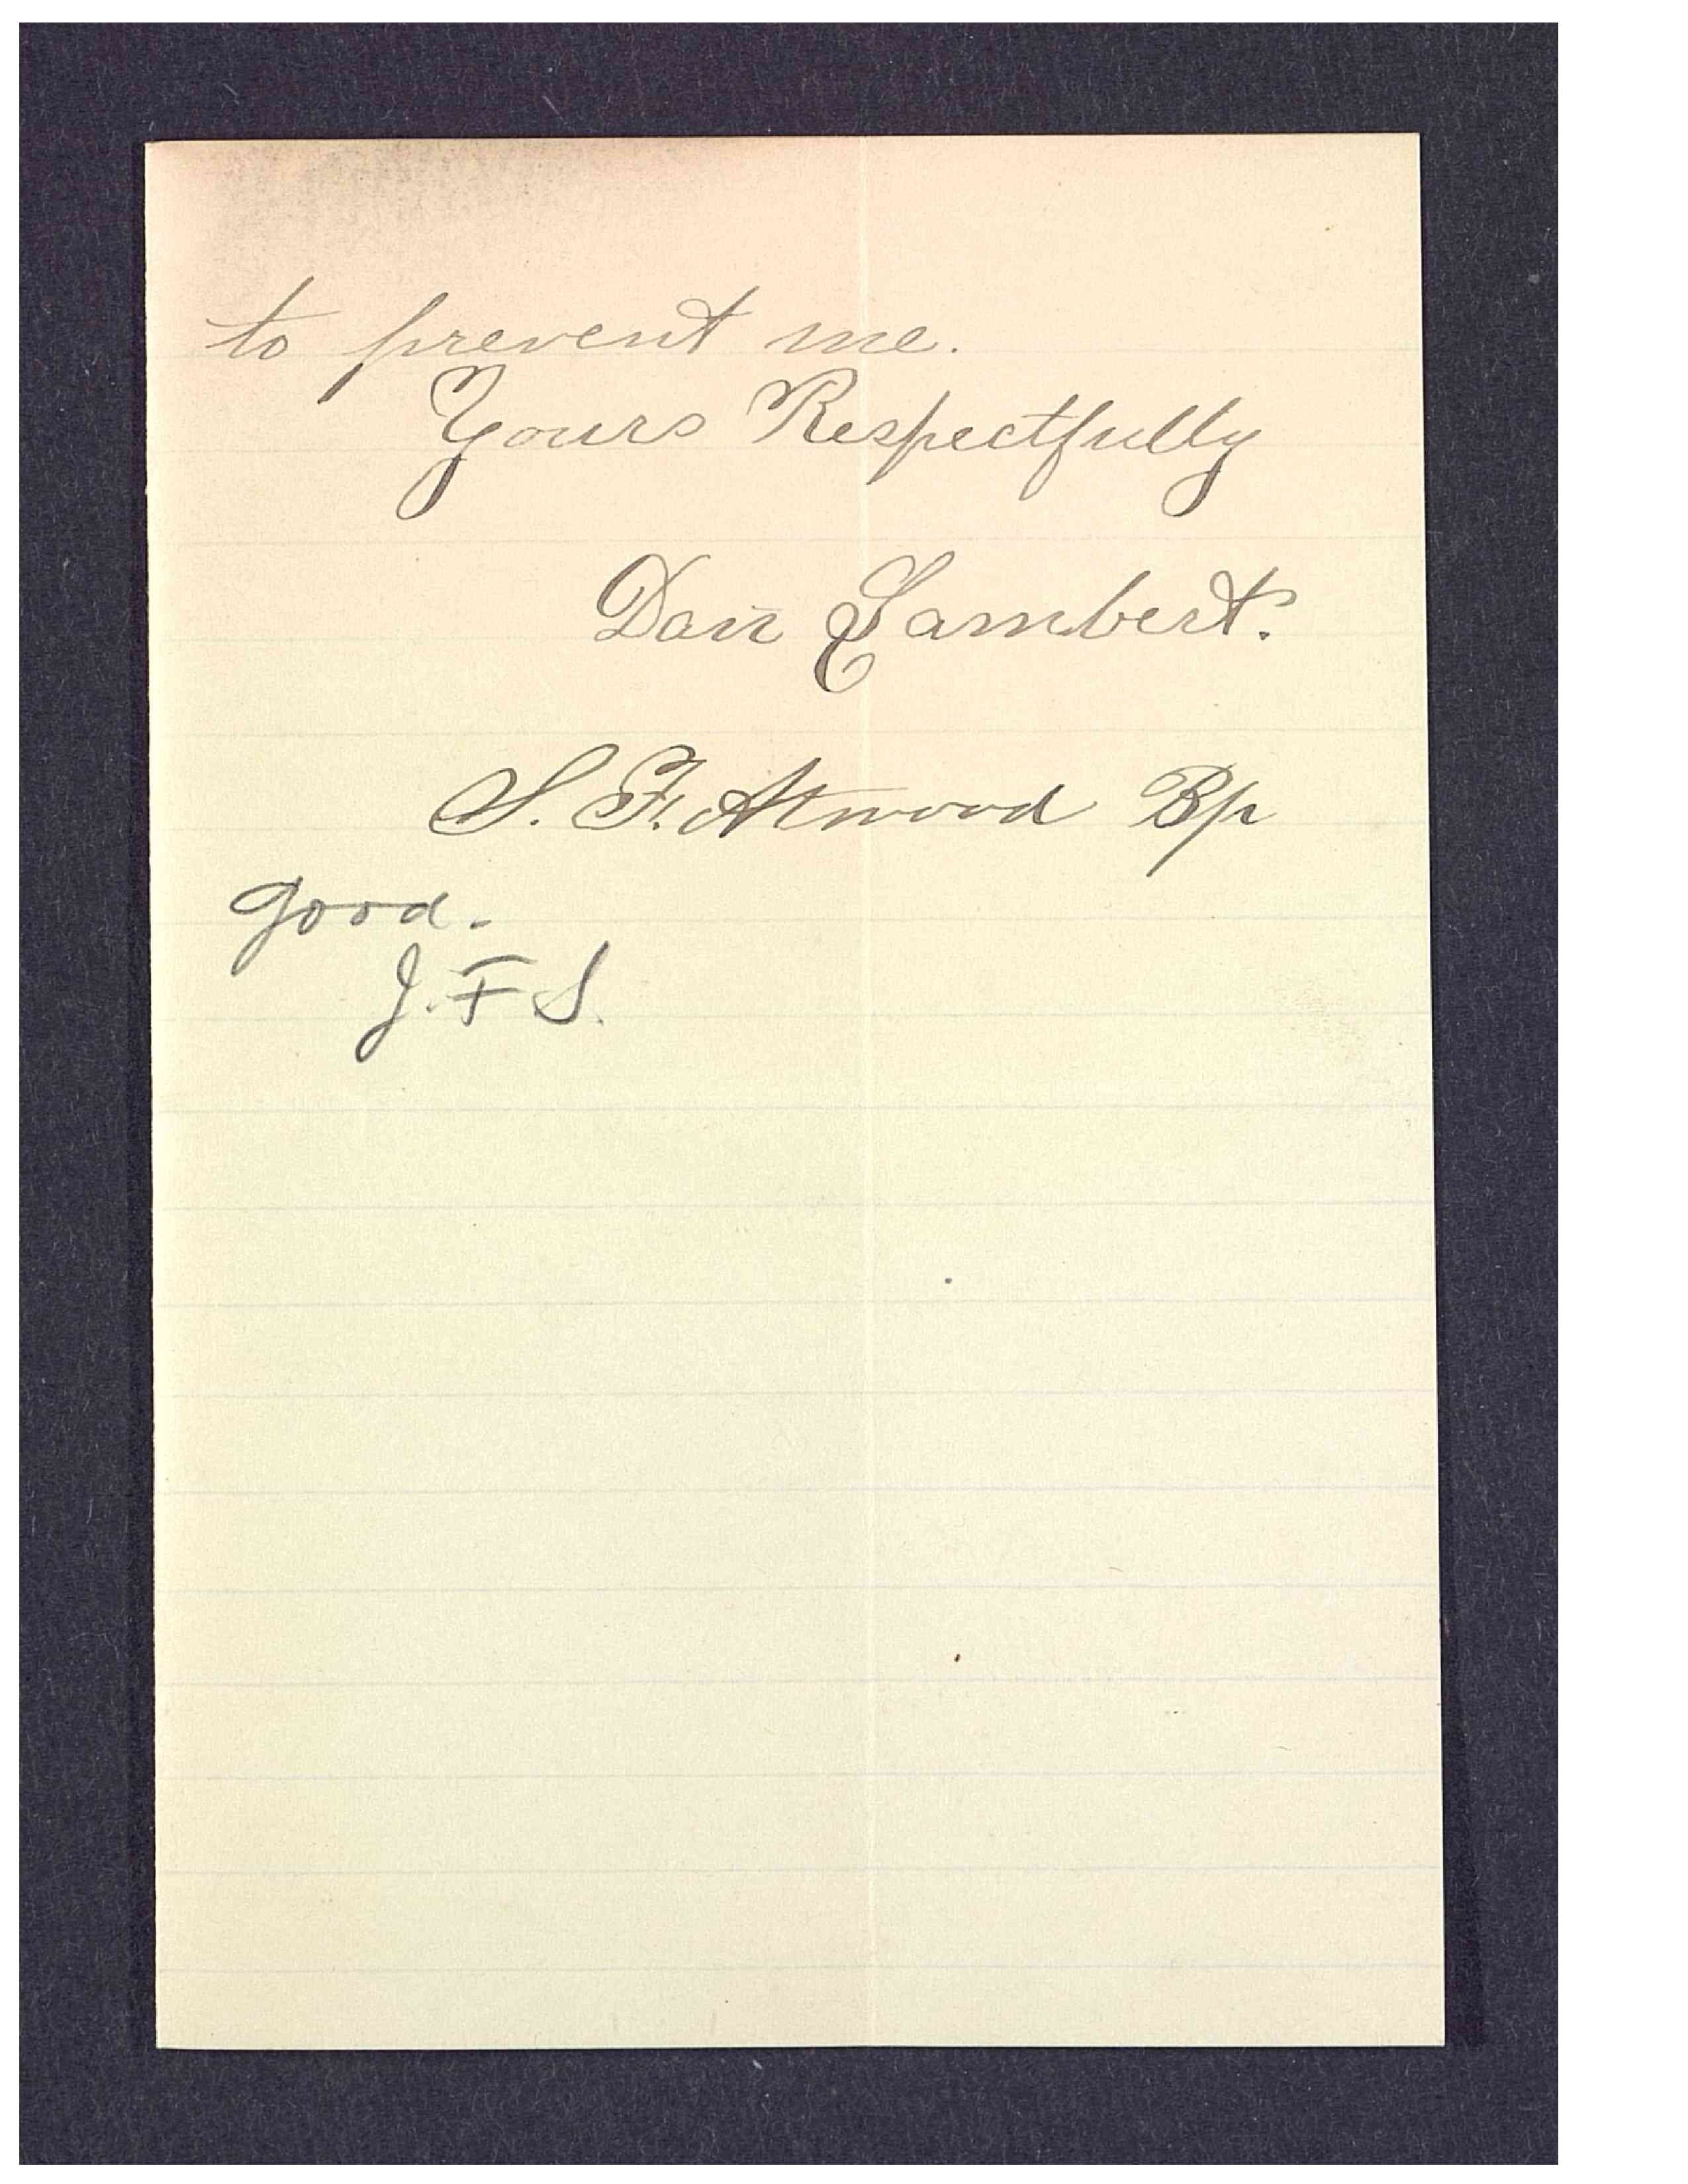 to prevent me.
Yours Respectfully
Dan Lambert.
S. F. Atwood Bp
good.
J. F S.